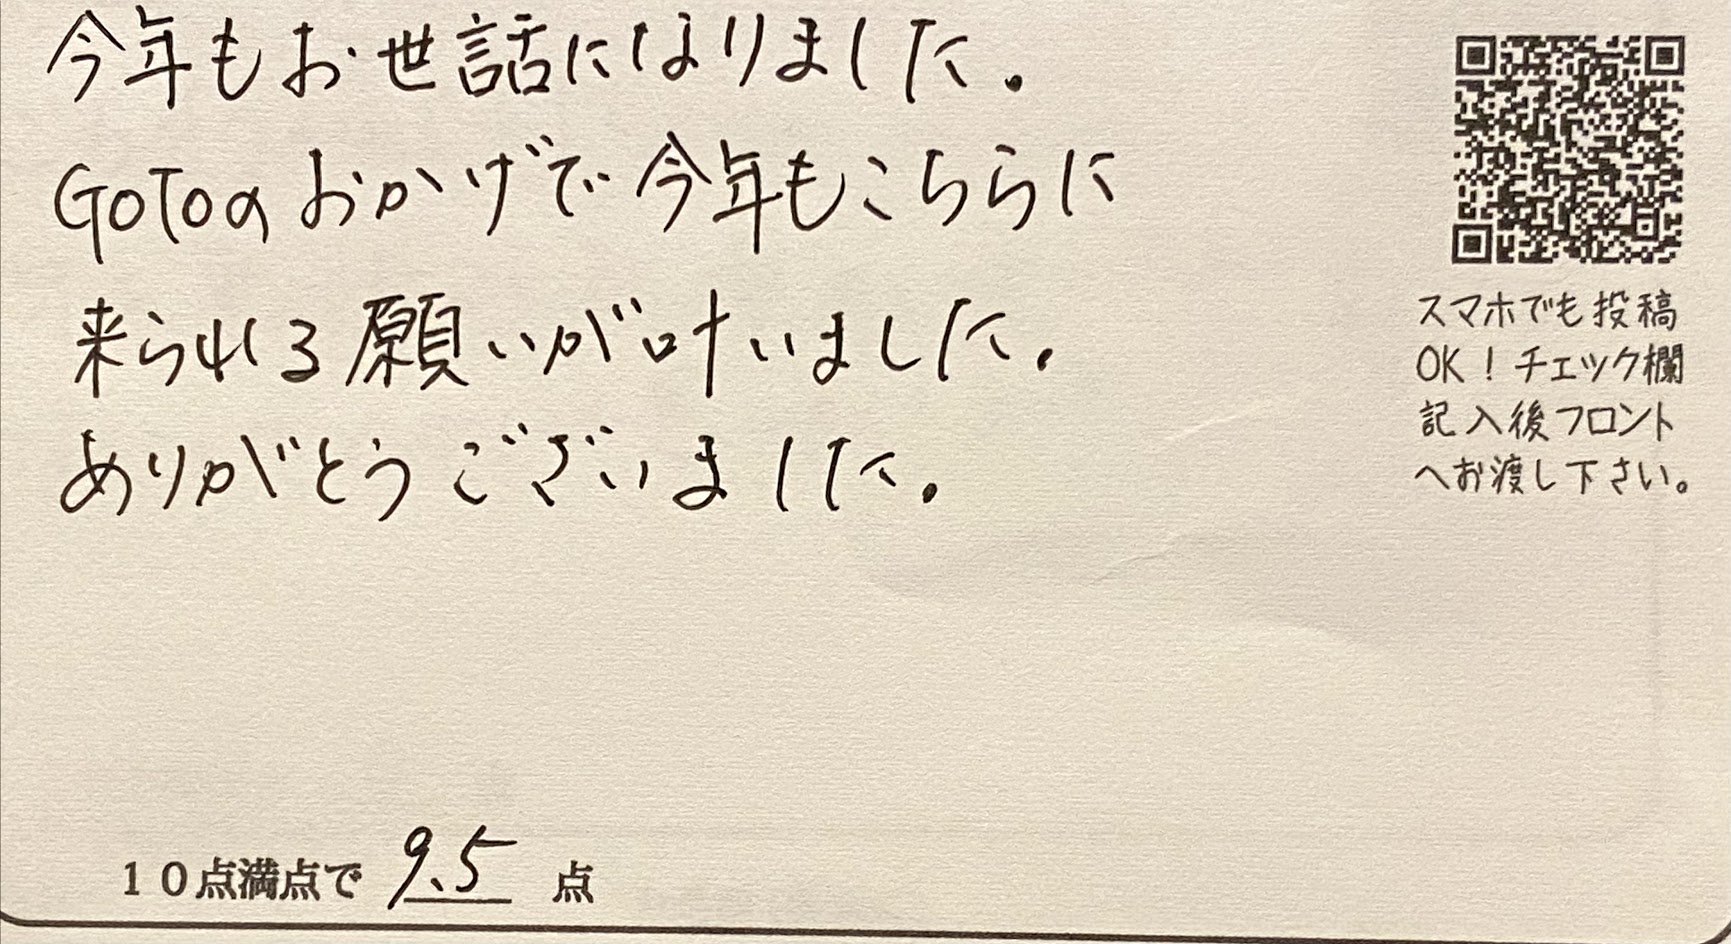 今年もお世話になりました。
GoToのおかげで今年もこちらに
来られる願いが叶いました。
ありがとうございました。
スマホでも投稿
OK！チェック欄
記入後フロント
へお渡し下さい。
10点満点で 9.5 点